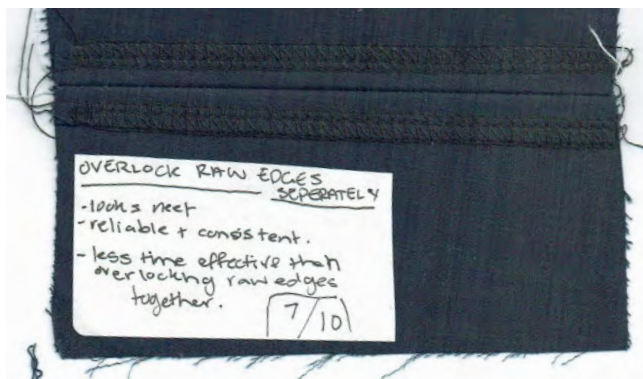 OVERLOCK RAW EDGES
SEPERATELY
-looks neet
-reliable + consistent.
-less time effective than
overlocking raw edges
together.
7/10